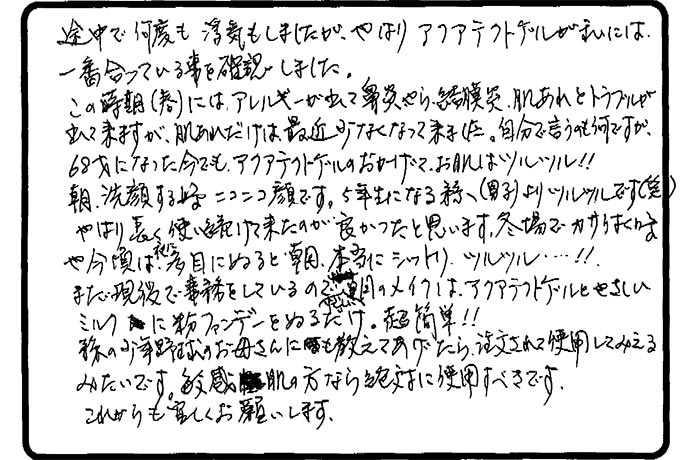 途中で何度も浮気もしましたが、やはりアクアテクトゲルが私には、
一番合っている事を確認しました。
この時期(春)には、アレルギーが出て鼻炎やら、結膜炎、肌あれとトラブルが
出て来ますが、肌あれだけは最近少なくなって来ました。自分で言うのも何ですが、
68才になった今でも、アクアテクトゲルのおかげで、お肌はツルツル!!
朝、洗顔する時ニコニコ顔です。5年生になる孫、(男子)よりツルツルです(笑)
やはり長く使い続けて来たのが良かったと思います。冬場でカサつく時
や今頃は、夜に多目にぬると朝、本当にシットリ、ツルツル…!!
まだ現役で事務をしているので朝のメイクは、アクアテクトゲルとやさしい
ミルクに粉ファンデーをぬるだけ。超簡単!!
孫の少年野球のお母さんにも教えてあげたら、注文されて使用してみえる
みたいです。敏感肌の方なら絶対に使用すべきです。
これからも宜しくお願いします。